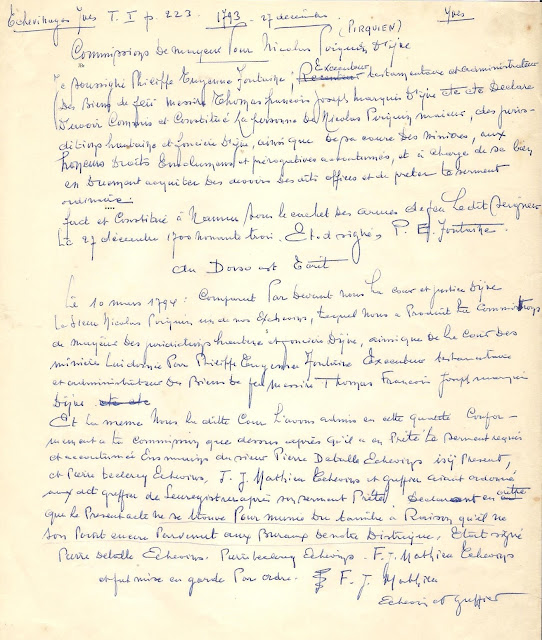 Echevinage Yves T. I p. 223. 1793 - 27 décembre Yves
(PIRQUIEN)
Commissions de mayeur pour Nicolas Poiquin D'yve
Je soussigné Philippe Eugenne Fontaine, Executeur testamentaire et administrateur
Des Biens de feu messire Thomas françois Joseph marquis D'yve etc etc Declare
D'avoir Commis et Constitué la personne de Nicolas Poiquin mayeur, des juris-
ditions hautaine et fonciere D'yve, ainsi que de sa cour des Minières, aux
honneurs Droits Emolumens et prerogatives accoutumés, et à charge de sa bien
en Duement acquiter des devoirs des dits offices et de preter le serment
ordinaire.
fait et Constitué à Namur sous le cachet des armes de feu Ledit Seigneur
Le 27 décembre 1700 nonante trois. Et. d signés P. E. Fontaine.
au Dos est Ecrit
Le 10 mars 1794 : Comparut Par Devant nous la cour et justice D'yve
Le Sieur Nicolas Poiquin un de nos Echevins, lequel nous a Produit la Commission
de mayeur des juridictions hautaine et fonciere D'yve, ainsi que de la Cour des
minières lui donnée Par Philippe Eugenne Fontaine Executeur testamentaire
et administrateur des Biens de feu Messire Thomas François Joseph marquis
D'yve etc etc
Et la meme Nous la ditte Cour l'avons admis en cette qualité Confor-
mement a la commission que dessus après qu'il a eu Prété le serment requis
et accoutumé Ens mains du sieur Pierre Delalle Echevins icij Present,
et Pierre leclercq Echevins, F. J. Mathieu Echevins et Greffier aiant ordonné
aux dit greffier de l'enregistrer après serment Prété. Declarant en outre
que le Present acte ne se trouve Pour munie Du timbre à Raison qu'il ne
son Point encore Parvenut aux Bureaux De notre District. Etait signé
Pierre Delalle Echevins. Pierre leclercq Echevins. F. J. Mathieu Echevins
et fut mise en garde Par ordre. F. J. Mathieu
Echevin et Greffier